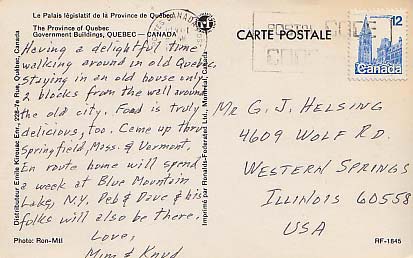 Le Palais législatif de la Province de Québec
The Province of Quebec
Government Buildings, QUEBEC — CANADA
Having a delightful time
walking around in old Quebec,
staying in an old house only
2 blocks from the wall around
the old city. Food is truly
delicious, too. Came up thru
Springfield, Mass. & Vermont.
En route home will spend
a week at Blue Mountain
Lake, N.Y. Peb & Dave & his
folks will also be there.
Love,
Mim & Knud
Photo: Ron-Mtl
Distributeur Emile Kirouac Enr., 225-7e Rue, Québec, Canada
Imprimé par Ronalds-Federated Ltd., Montréal, Canada
CANADA
POSTAL CODE
CODE
CARTE POSTALE
12
Canada
MR G. J. HELSING
4609 WOLF RD.
WESTERN SPRINGS
ILLINOIS 60558
USA
RF-1845